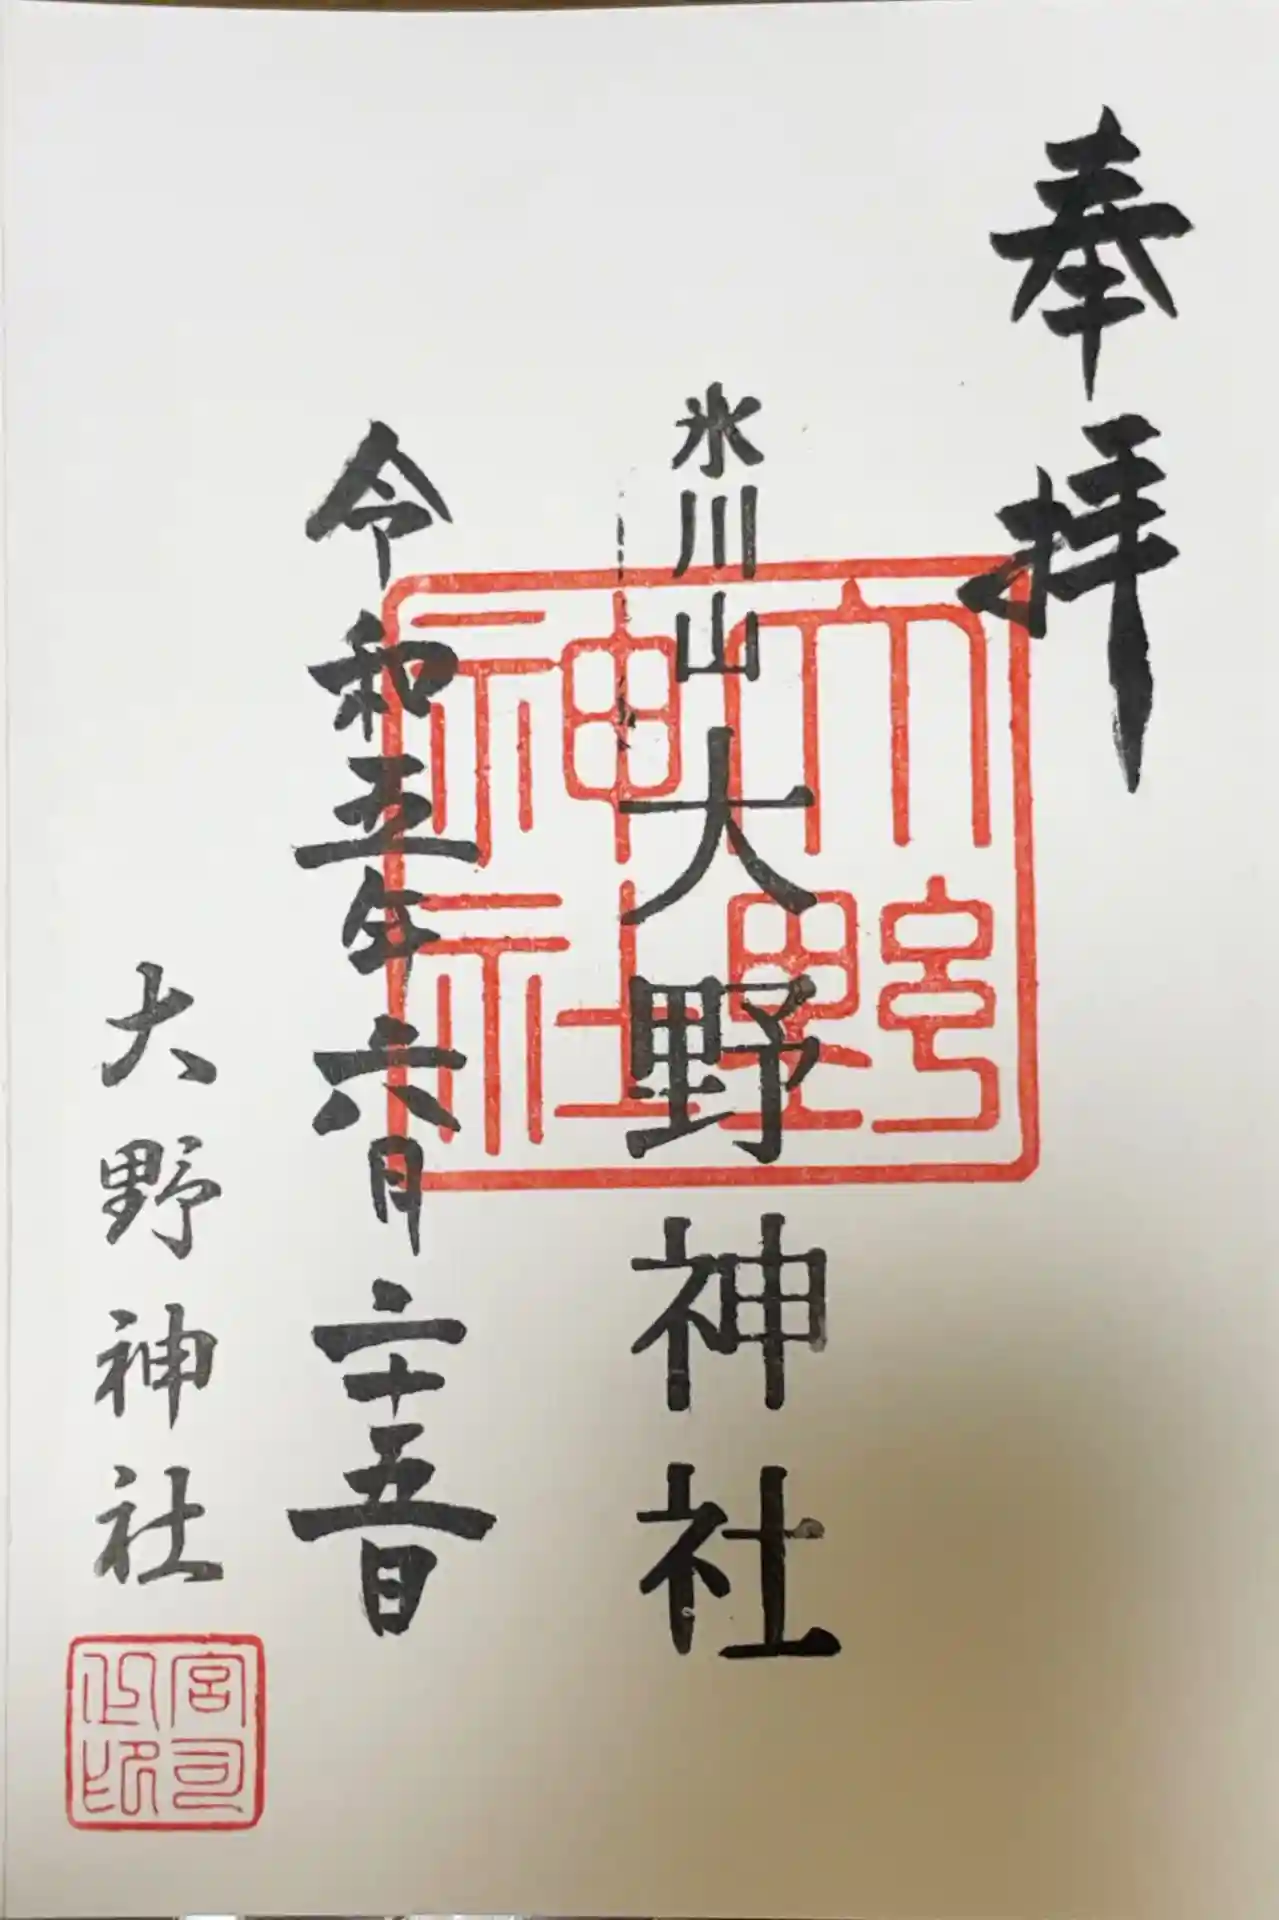 奉拝
氷川山大野神社
大野神社
令和五年六月二十五日
大野神社
宮司之印